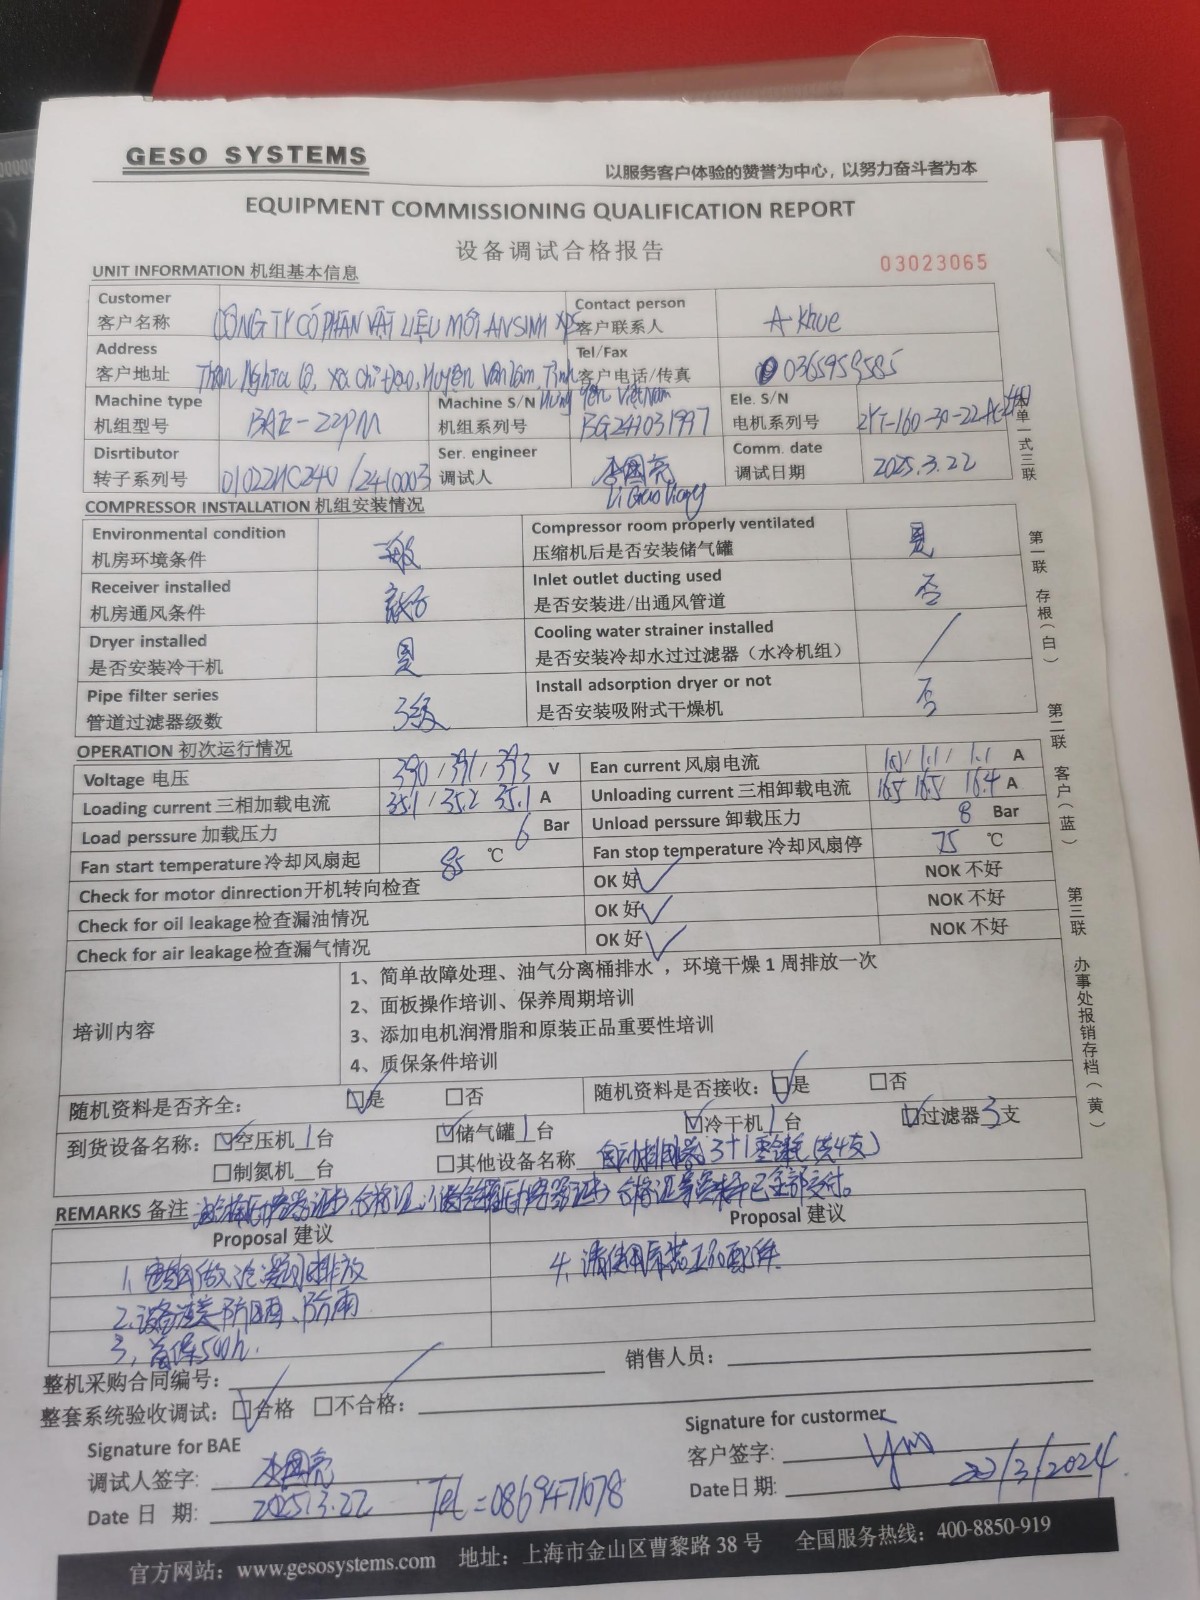 GESO SYSTEMS
以服务客户体验的赞誉为中心，以努力奋斗者为本
EQUIPMENT COMMISSIONING QUALIFICATION REPORT
设备调试合格报告
03023065
UNIT INFORMATION 机组基本信息
Customer 客户名称 CÔNG TY CỔ PHẦN VẬT LIỆU MỚI AN SINH XPS
Contact person 客户联系人 A Khuê
Address 客户地址 Thôn Nghĩa Lộ, xã Chỉ Đạo, Huyện Văn Lâm, Tỉnh Hưng Yên Việt Nam
Tel/Fax 客户电话/传真 0365959585
Machine type 机组型号 BAE-22PM
Machine S/N 机组系列号 BG241031997
Ele. S/N 电机系列号 2YT-160-30-22-
Disrtibutor 转子系列号 /2410003
Ser. engineer 调试人 李国亮
Comm. date 调试日期 2025.3.22
COMPRESSOR INSTALLATION 机组安装情况
Environmental condition 机房环境条件 一般
Compressor room properly ventilated 压缩机后是否安装储气罐 是
Receiver installed 机房通风条件 良好
Inlet outlet ducting used 是否安装进/出通风管道 否
Dryer installed 是否安装冷干机 是
Cooling water strainer installed 是否安装冷却水过过滤器（水冷机组） /
Pipe filter series 管道过滤器级数 3级
Install adsorption dryer or not 是否安装吸附式干燥机 否
OPERATION 初次运行情况
Voltage 电压 390 / 391 / 393 V
Ean current 风扇电流 1.0 / 1.1 / 1.1 A
Loading current 三相加载电流 35.1 / 35.2 35.1 A
Unloading current 三相卸载电流 16.5 16.5 16.4 A
Load perssure 加载压力 6 Bar
Unload perssure 卸载压力 8 Bar
Fan start temperature 冷却风扇起 85 ℃
Fan stop temperature 冷却风扇停 75 ℃
Check for motor dinrection 开机转向检查 OK 好 ✓ NOK 不好
Check for oil leakage 检查漏油情况 OK 好 ✓ NOK 不好
Check for air leakage 检查漏气情况 OK 好 ✓ NOK 不好
培训内容
1、简单故障处理、油气分离桶排水，环境干燥 1 周排放一次
2、面板操作培训、保养周期培训
3、添加电机润滑脂和原装正品重要性培训
4、质保条件培训
随机资料是否齐全：☑是 □否
随机资料是否接收：☑是 □否
到货设备名称：☑空压机 1 台 ☑储气罐 1 台 ☑冷干机 1 台 ☑过滤器 3 支
□制氮机 台 □其他设备名称 自动排水器 3+1零气耗(共4支)
REMARKS 备注 合格证 合格证等资料已全部交付。
Proposal 建议
Proposal 建议
1. 做 冷凝水排放
4. 请使用原装正品配件.
2. 设备 防晒、防雨
3. 首保500h.
整机采购合同编号：
销售人员：
整套系统验收调试：☑合格 □不合格：
Signature for BAE
调试人签字: 李国亮
Date 日 期: 2025.3.22
Tel =0869471678
Signature for custormer
客户签字:
Date日期: 22/3/2024
官方网站：www.gesosystems.com 地址：上海市金山区曹黎路 38 号 全国服务热线：400-8850-919
本单一式三联
第一联 存根（白）
第二联 客户（蓝）
第三联 办事处报销存档（黄）